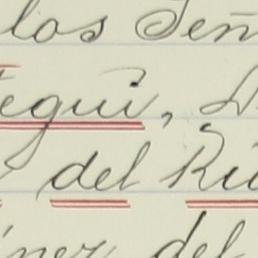 los Señ
egui, D
del Ri
inez del